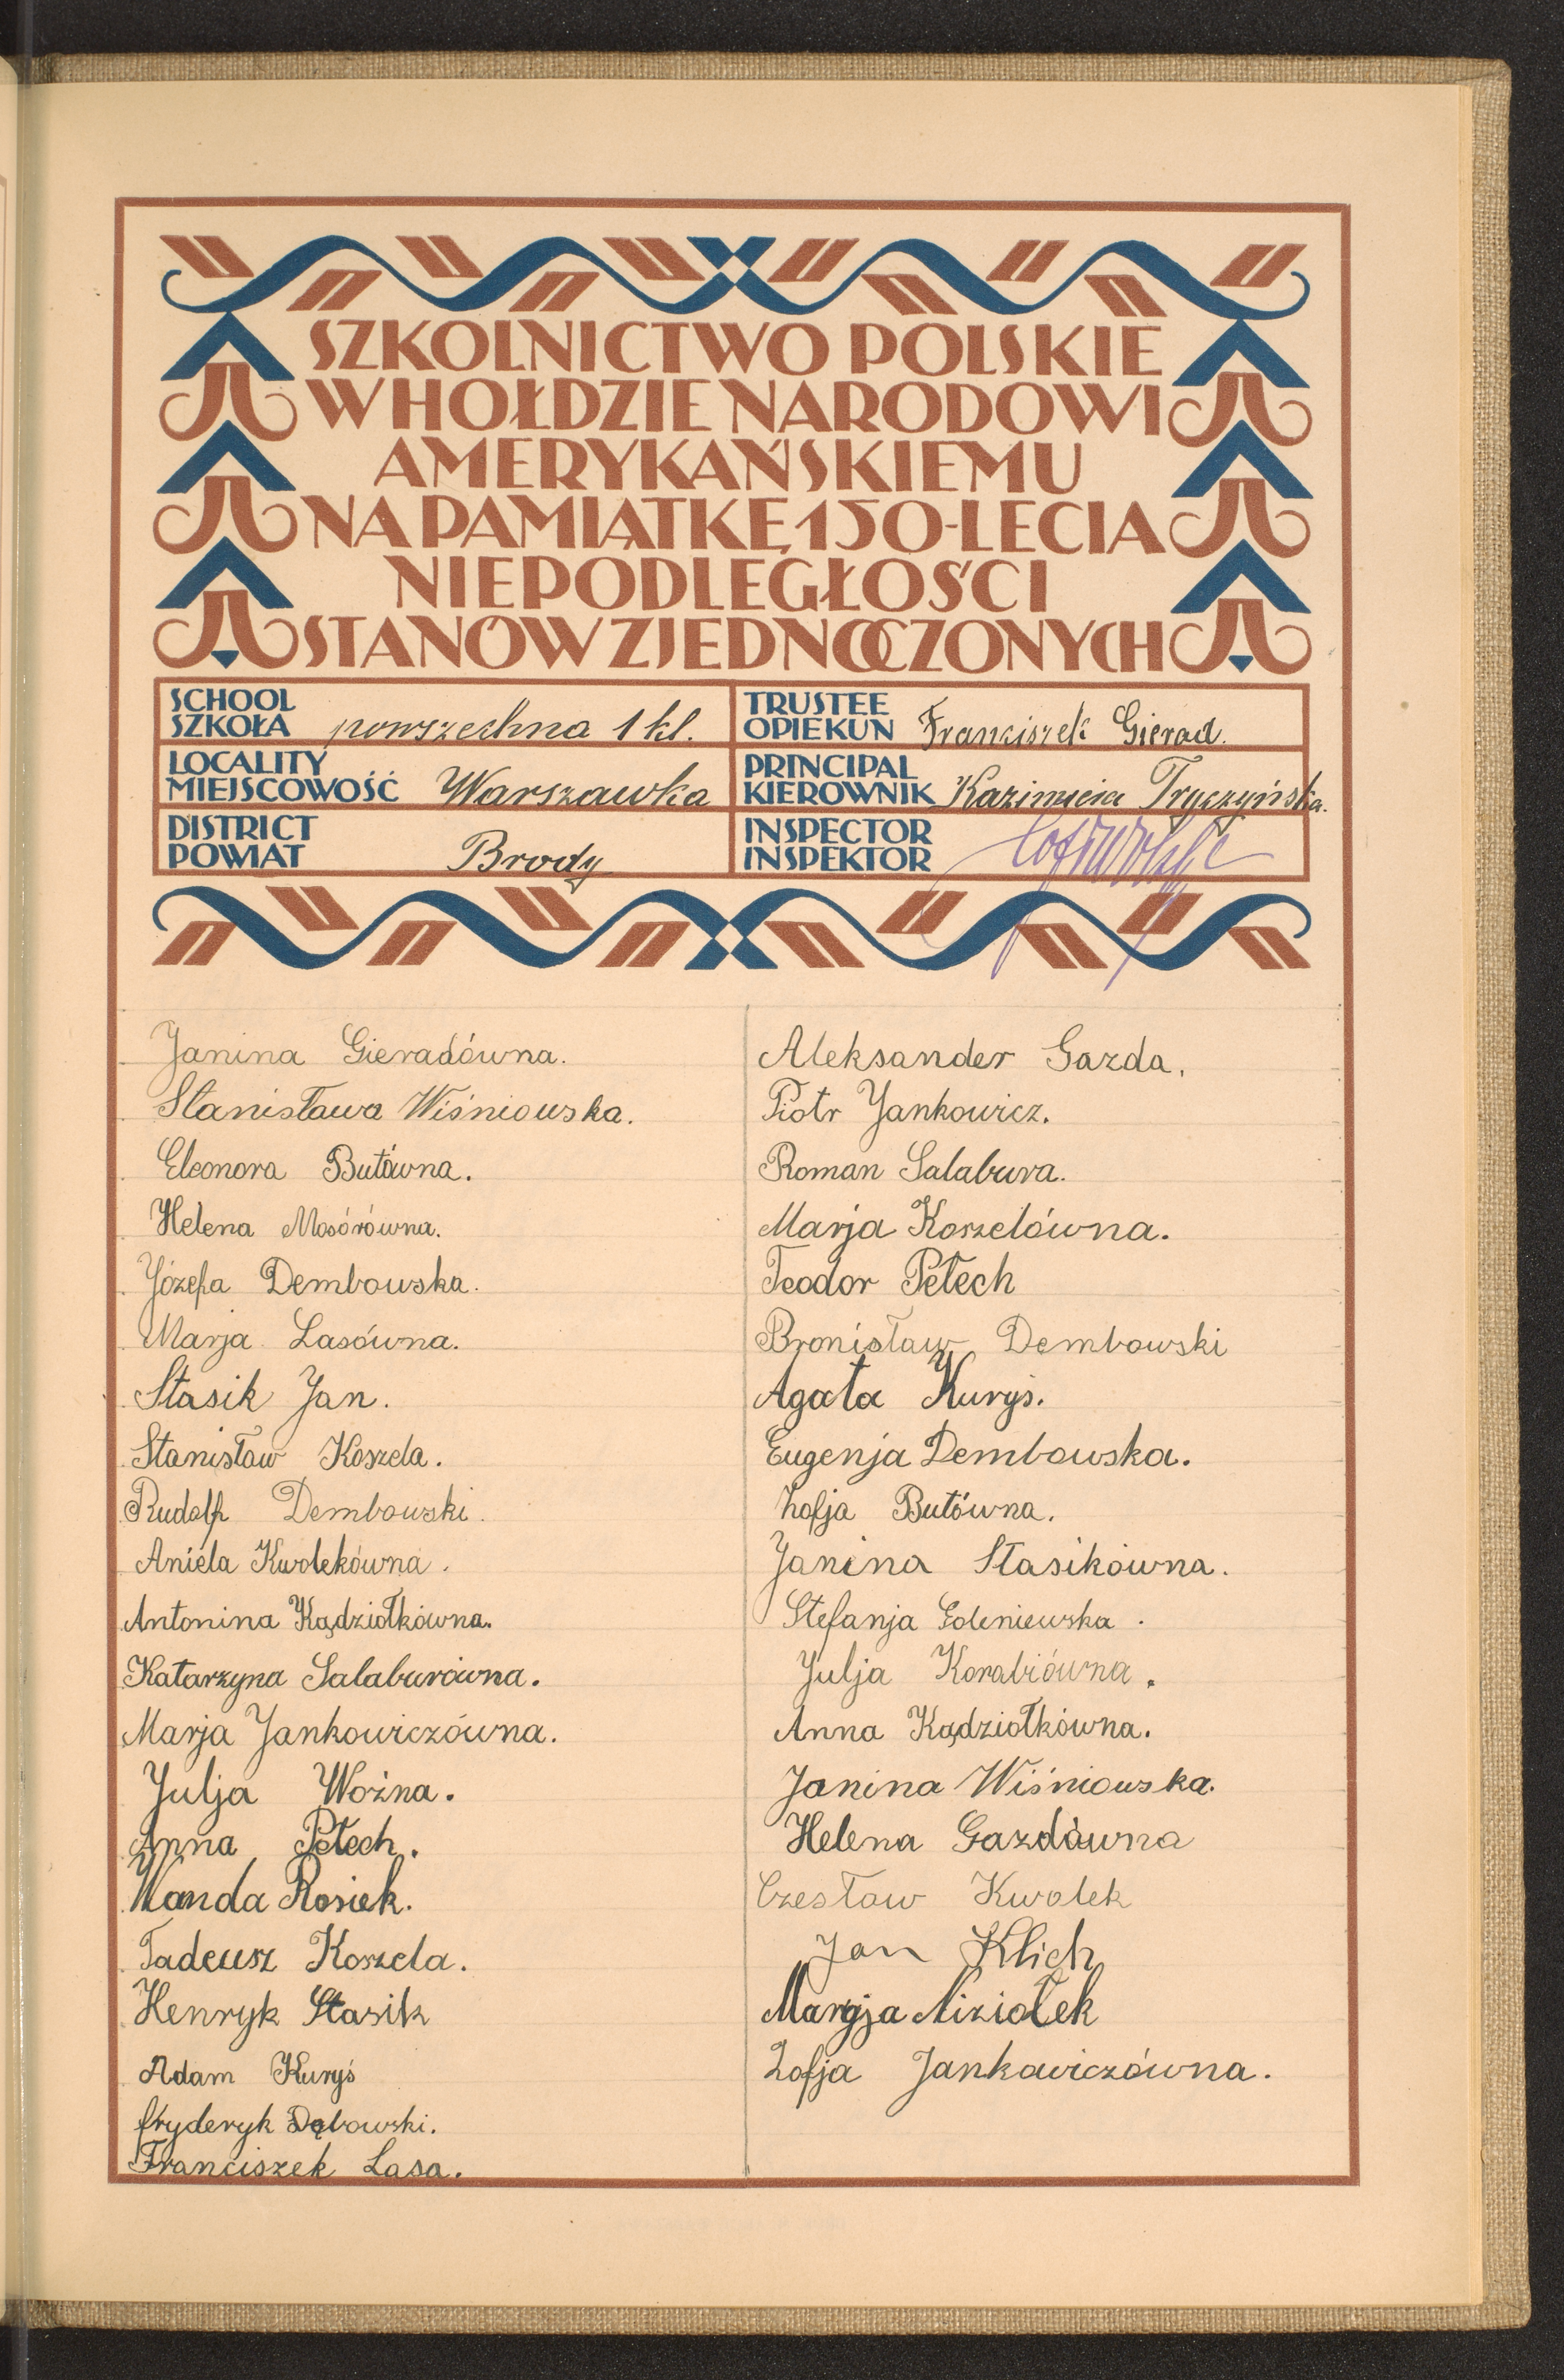 SZKOLNICTWO POLSKIE
W HOŁDZIE NARODOWI
AMERYKAŃSKIEMU
NA PAMIĄTKĘ 150-LECIA
NIEPODLEGŁOŚCI
STANÓW ZJEDNOCZONYCH
SCHOOL
SZKOŁA powszechna 1 kl.
TRUSTEE
OPIEKUN Franciszek Gierad.
LOCALITY
MIEJSCOWOŚĆ Warszawka
PRINCIPAL
KIEROWNIK Kazimiera Tryczyńska.
DISTRICT
POWIAT Brody
INSPECTOR
INSPEKTOR
Janina Gieradówna.
Stanisława Wiśniowska.
Eleonora Butówna.
Helena Mosórówna.
Józefa Dembowska.
Marja Lasówna.
Stasik Jan.
Stanisław Koszela.
Rudolf Dembowski.
Aniela Kwolekówna.
Antonina Kądziołkówna.
Katarzyna Salaburówna.
Marja Jankowiczówna.
Julja Woźna.
Anna Petech.
Wanda Rosiek.
Tadeusz Koszela.
Henryk Stasik
Adam Kuryś
Fryderyk Dębowski.
Franciszek Lasa.
Aleksander Gazda.
Piotr Jankowicz.
Roman Salabura.
Marja Koszelówna.
Teodor Petech
Bronisław Dembowski
Agata Kuryś.
Eugenja Dembowska.
Zofja Butówna.
Janina Stasikówna.
Stefanja Goleniewska.
Julja Korabiówna.
Anna Kądziołkówna.
Janina Wiśniowska.
Helena Gazdówna
Czesław Kwolek
Jan Klich
Marja Niziołek
Zofja Jankowiczówna.